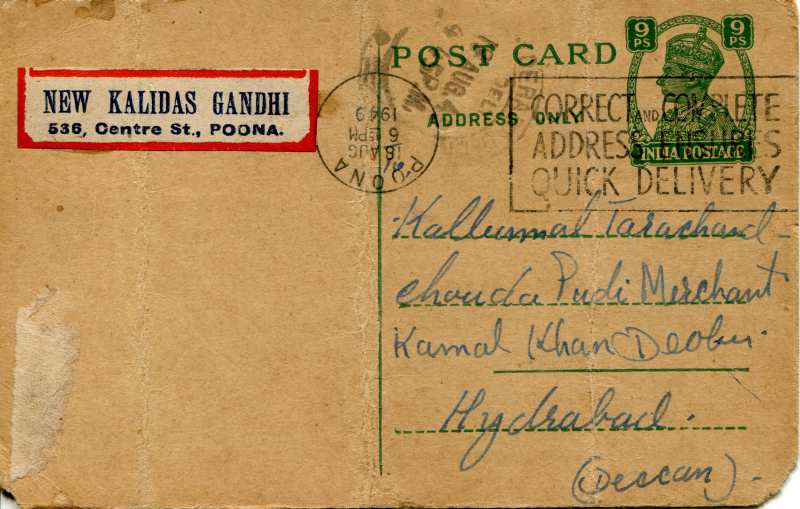 POST CARD
9 PS
9 PS
INDIA POSTAGE
ADDRESS ONLY
NEW KALIDAS GANDHI
536, Centre St., POONA.
POONA
18 AUG
6 PM
1949
CORRECT AND COMPLETE
ADDRESS ENSURES
QUICK DELIVERY
AUG. 4
Kallumal Tarachand
Chouda Pudi Merchant
Kamal Khan
Hydrabad.
(Deccan).